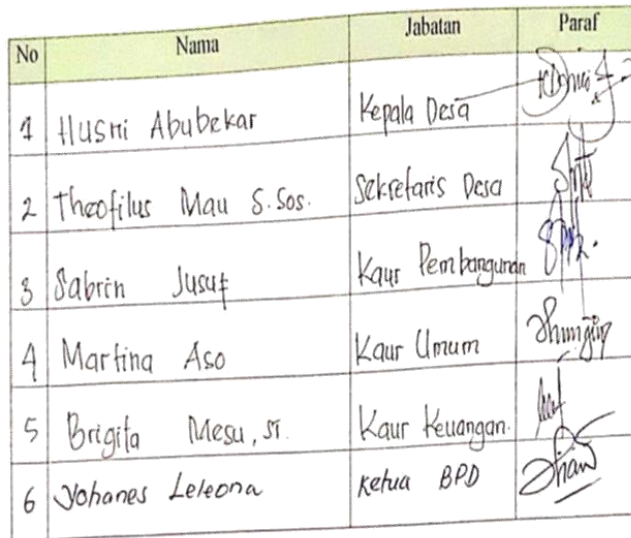 No Nama Jabatan Paraf
1 Husni Abubekar Kepala Desa
2 Theofilus Mau S.Sos. Sekretaris Desa
3 Sabrin Jusuf Kaur Pembangunan
4 Martina Aso Kaur Umum
5 Brigita Mesu, ST. Kaur Keuangan.
6 Yohanes Leleona Ketua BPD